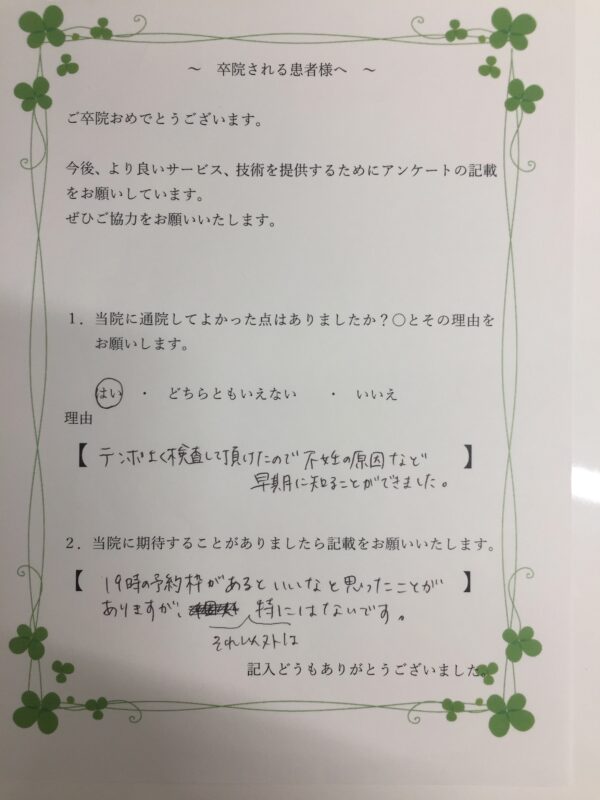 ～　卒院される患者様へ　～
ご卒院おめでとうございます。
今後、より良いサービス、技術を提供するためにアンケートの記載
をお願いしています。
ぜひご協力をお願いいたします。
１．当院に通院してよかった点はありましたか？○とその理由を
お願いします。
はい　・　どちらともいえない　　・　いいえ
理由
【 テンポよく検査して頂けたので 不妊の原因など 】
早期に知ることができました。
２．当院に期待することがありましたら記載をお願いいたします。
【 19時の予約枠があるといいなと思ったことが 】
ありますが、特にはないです。
それ以外は
記入どうもありがとうございました。